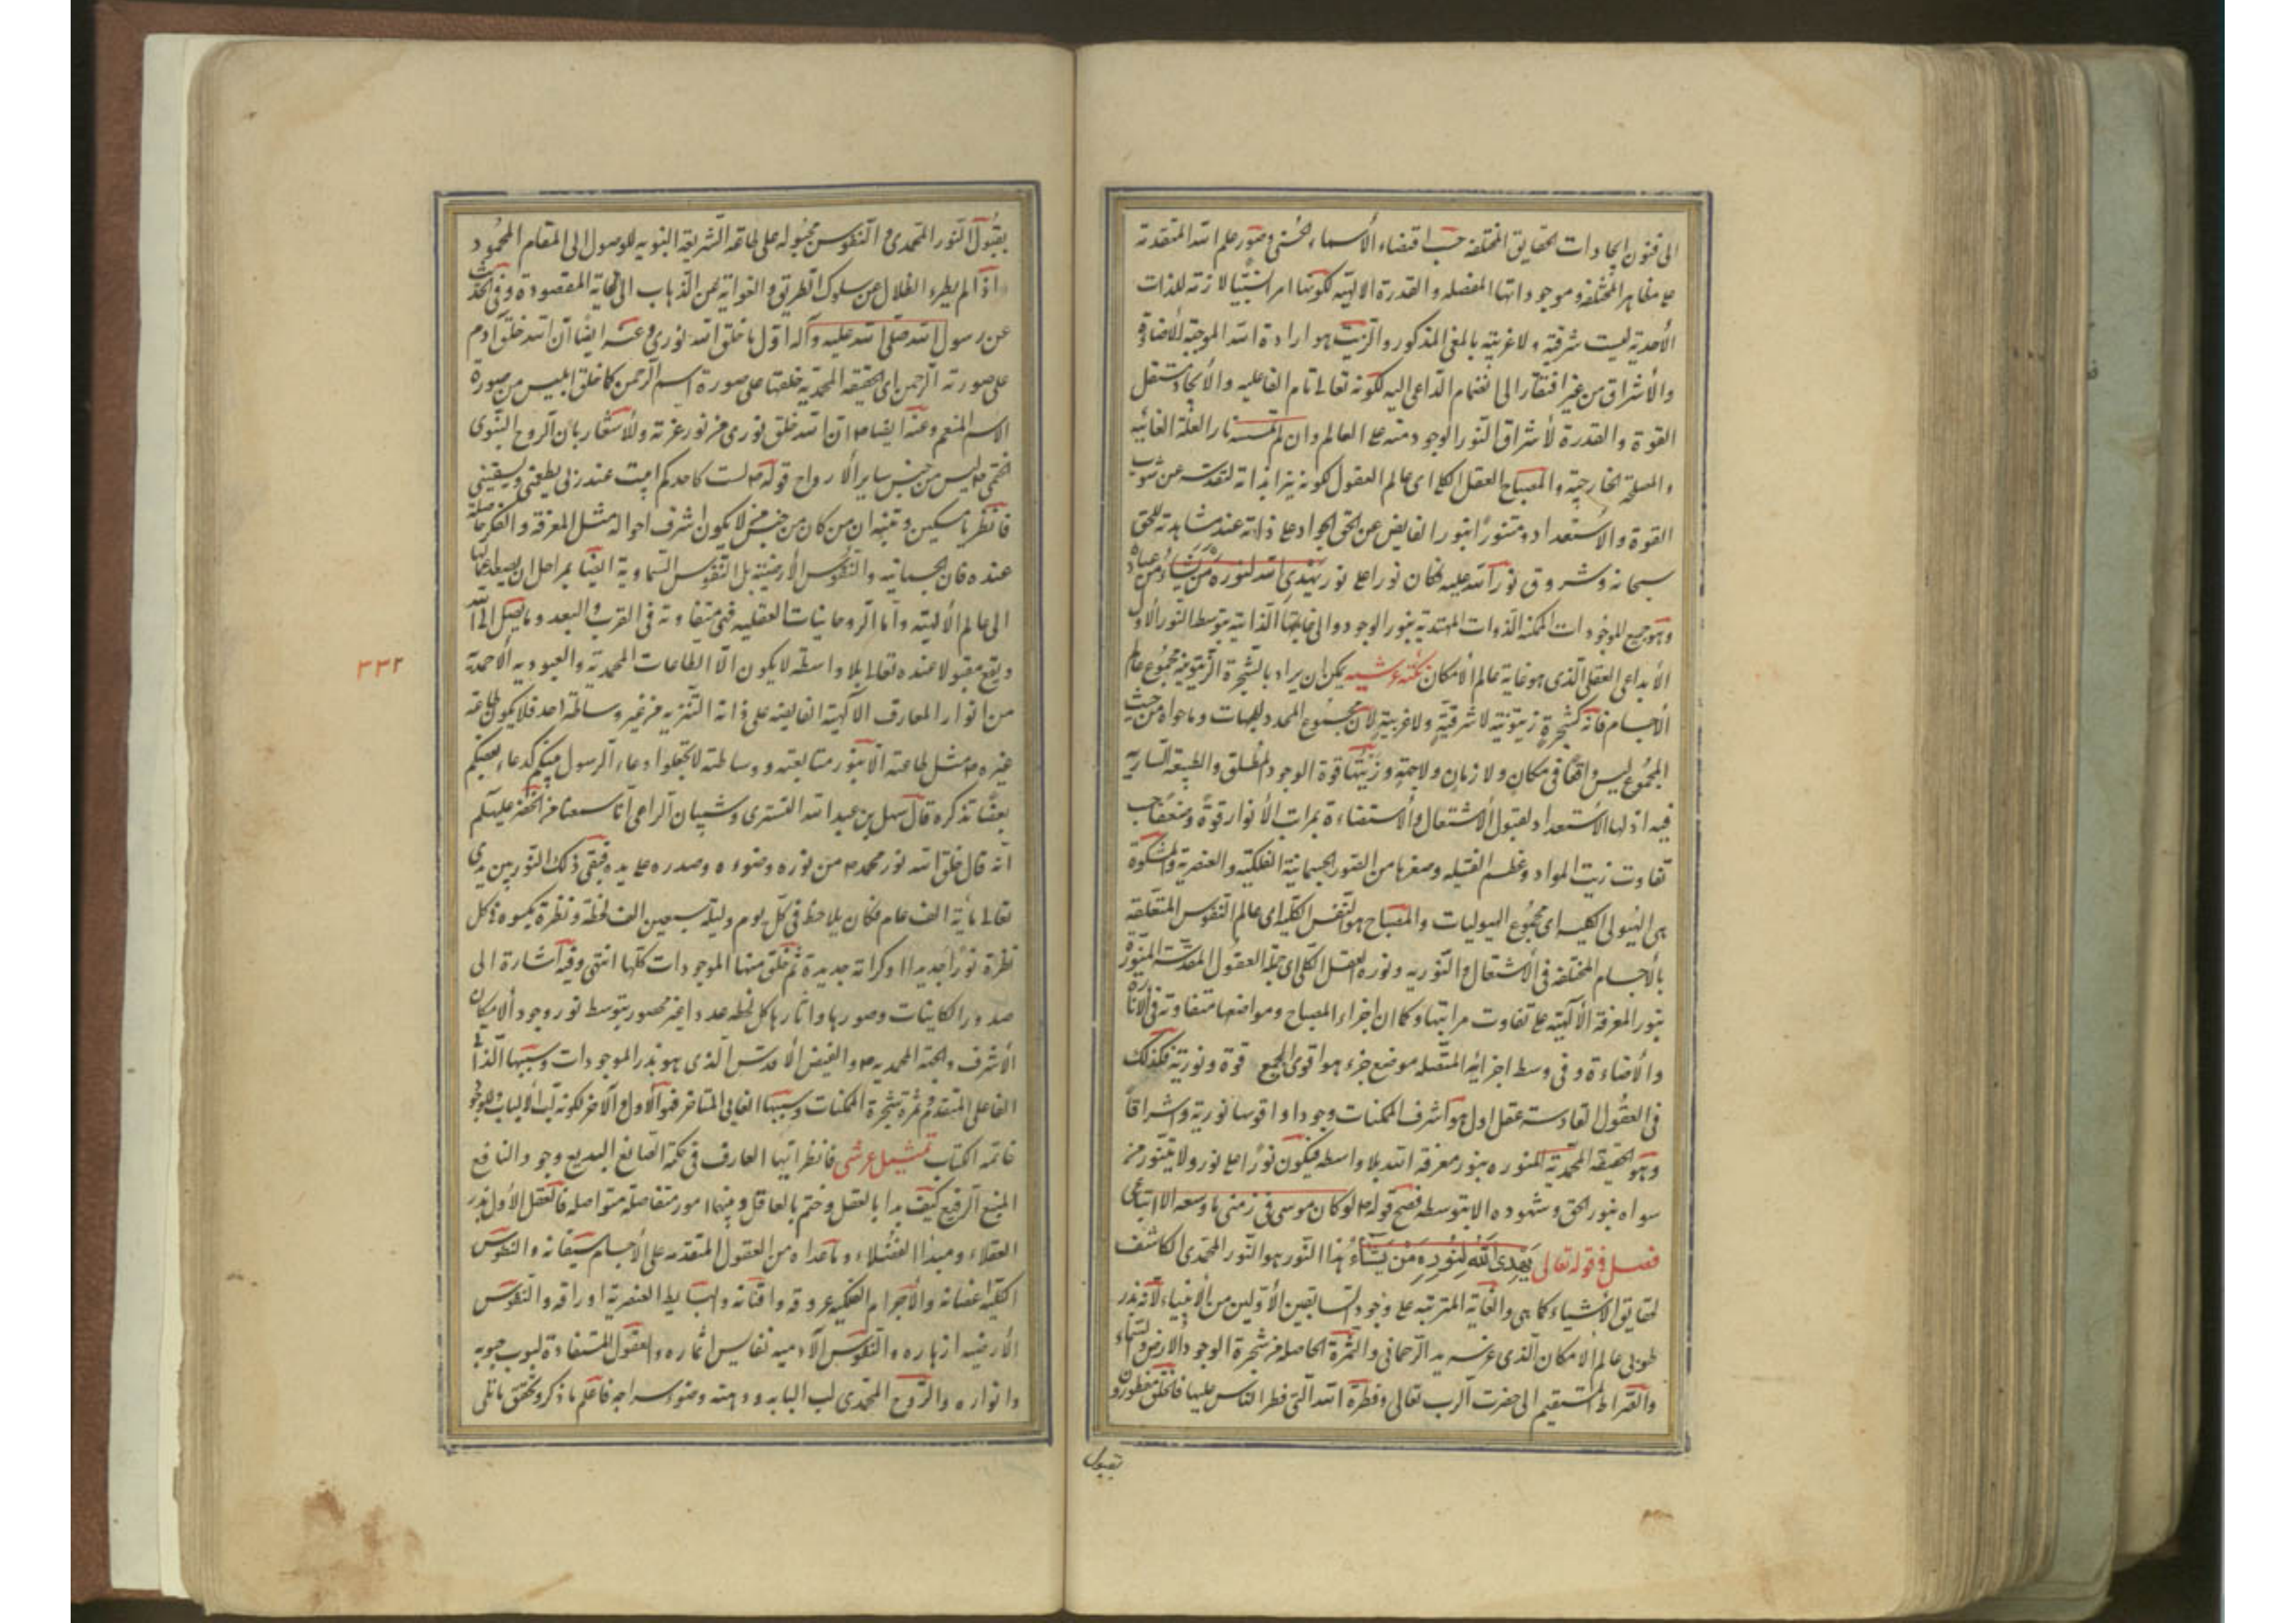 الى فنون ايجادات الحقايق المختلفه حسب اقتضاء الأسماء الحسنى وصور علم الله المتقدمة
على مظاهر المختلفة وموجوداتها المفصله والقدرة الالهيّه لكونها امرا نسبيّا لازمة للذات
الأحدية ليست شرقية ولا غربيّه بالمعنى المذكور والزيت هو ارادة الله الموجبة للأضاءة
والأشراق من غير افتقار الى انضمام الداعى اليه لكونه تعالى تام الفاعليه والأيجاد مستقل
القوة والقدرة لأشراق النور الوجود منه على العالم وان لم تمسسه نار العلّة الغائيه
والمصلحة الخارجيّة والمصباح العقل الكلى اى عالم العقول لكونه نيرا بذاته لتقدسه عن شوب
القوة والأستعداد ومتنوّرًا بنور الفايض عن الحق الجواد على ذاته عند مشاهدته للحق
سبحانه وشروق نور الله عليه فكان نورا على نور يهدى الله لنوره من يشاء من عباده
وهو جميع الموجودات الممكنه الذوات المهتدية بنور الوجود والى غاياتها الذاتية بتوسط النور الأول
الأبداعى العقلى الّذى هو غاية عالم الأمكان نكته عرشيه يمكن ان يراد بالشّجرة الزيتونيه مجموع عالم
الأجسام فانّه كشجرةٍ زيتونية لا شرقيّةٍ ولا غربيةٍ لان مجموع المحدد للجهات وما حواه من حيث
المجموع ليس واقعًا فى مكان ولا زمان ولا جهة وزيتها قوة الوجود المطلق والطبيعة السارية
فيه اذ لها الأستعداد لقبول الأشتعال والأستضاءة بمراتب الأنوار قوةً وضعفًا بحسب
تفاوت زيت المواد وعظم الفتيله وصغرها من الصور الجسمانية الفلكيه والعنصرية والمشكوة
هى الهيولى الكليه اى مجموع الهيوليات والمصباح هو النفس الكلية اى عالم النفوس المتعلقة
بالأجسام المختلفه فى الأشتعال والتنوريه ونوره العقل الكلى اى جملة العقول المقدسة المنورة
بنور المعرفة الألهيّه على تفاوت مراتبها وكما ان اجزاء المصباح ومواضعها متفاوتة فى الانارة
والأضاءة وفى وسط اجزائه المتصله موضع جزء هو اقوى الجميع قوة ونورية فكذلك
فى العقول القادسة عقل اول هو اشرف الممكنات وجودا واقوها نورية واشراقاً
وهو الحقيقة المحمّدية المنوره بنور معرفة الله بلا واسطه فيكون نورًا على نور ولا يتنور من
سواه بنور الحق وشهوده الا بتوسطه فصح قوله ص لو كان موسى فى زمنى ما وسعه الا اتباعى
فصل فى قوله تعالى يهدى الله لنوره من يشاء هذا النّور هو النّور المحمّدى الكاشف
لحقايق الأشياء كما هى والغاية المترتبه على وجود السابقين الأولين من الأنبياء لأنّه بذر
طوبى عالم الامكان الّذى غرسه يد الرّحمانى والثمرة الحاصله من شجرة الوجود الارض والسماء
والصّراط المستقيم الى حضرت الرّب تعالى وفطرة الله الّتى فطر الناس عليها فالخلق مفطورون
بقبول
بقبول النّور المحمّدى والنفوس مجبوله على طاعة الشريعة النبويه للوصول الى المقام المحمود
اذا لم يطرء الضلال عن سلوك الطريق والغواية عن الذهاب الى الغاية المقصودة وفى الحديث
عن رسول الله صلّى الله عليه وآله اوّل ما خلق الله نورى وعنه ايضا انّ الله خلق آدم
على صورته الرّحمن اى الحقيقة المحمديّه خلقها على صورة اسم الرّحمن كما خلق ابليس من صورة
الاسم المنعم وعنه ايضا ص ان الله خلق نورى من نور عزته وللأشعار بان الرّوح النّبوى
الختمى ص ليس من جنس ساير الأرواح قوله ص لست كاحدكم ابيت عند ربى يطعمنى ويسقينى
فانظر يا مسكين وتنبّه ان من كان من جنس لا يكون اشرف احواله مثل المعرفة والفكر حاصلة
عنده فان الجسمانيه والنفوس الأرضيّة بل النفوس السّماوية ايضًا بمراحل ان يصعد اعمالها
الى عالم الألهيّة واما الروحانيات العقليه فهى متفاوتة فى القرب والبعد وما يصل الى الله
ويقع مقبولا عنده تعالى بلا واسطه لا يكون الّا الطاعات المحمدية والعبوديه الاحمدية
٣٣٢
من انوار المعارف الالهيّة الفايضه على ذاته النّزيه من غير وساطة احد فلا يكون طاعة
غيره ص مثل طاعته الا بنور متابعته ووساطته لا تجعلوا دعاء الرسول بينكم كدعاء بعضكم
بعضًا تذكره قال سهل بن عبد الله التسترى وشيبان الراعى انّا سمعنا من الخضر عليه السلم
انّه قال خلق الله نور محمد ص من نوره وضوءه وصدره على يده فبقى ذلك النّور بين يدى
تعالى مأية الف عام فكان يلاحظ فى كلّ يوم وليلة سبعين الف لحظة ونظرة يكسوه فى كل
نظرة نورًا جديدا وكرامة جديدة ثم خلق منها الموجودات كلّها انتهى وفيه اشارة الى
صدور الكاينات وصورها واثارها كل لحظه عددا غير محصور بتوسط نور وجود الامكان
الأشرف والجهة المحمديه ص والفيض الأقدس الّذى هو بذر الموجودات وسببها الّذاتى
الفاعلى المتقدم ثمرة شجرة الممكنات وسببها الغائى المتاخر فهو الأول والآخر لكونه لب الألباب وللوجود
خاتمة الكتاب تمثيل عرشى فانظر ايّها العارف فى حكمة الصّانع البديع وجود النافع
المنيع الرّفيع كيف بدا بالعقل وختم بالعاقل وبينهما امور متفاصلة متواصله فالعقل الأول بذر
العقلاء ومبدا الفضلاء وما عداه من العقول المتقدمه على الأجسام سيقانه والنفوس
الكليّة اغصانه والأجرام الفلكيه عروقه وافنانه والبسايط العنصرية اوراقه والنفوس
الأرضيه ازهاره والنفوس الآدميه نفايس اثماره والعقول المستفادة لبوب حبوبه
وانواره والرّوح المحمّدى لب البابه ودهنه وضوء سراجه فاعلم ما ذكر وتحقق ما تلى